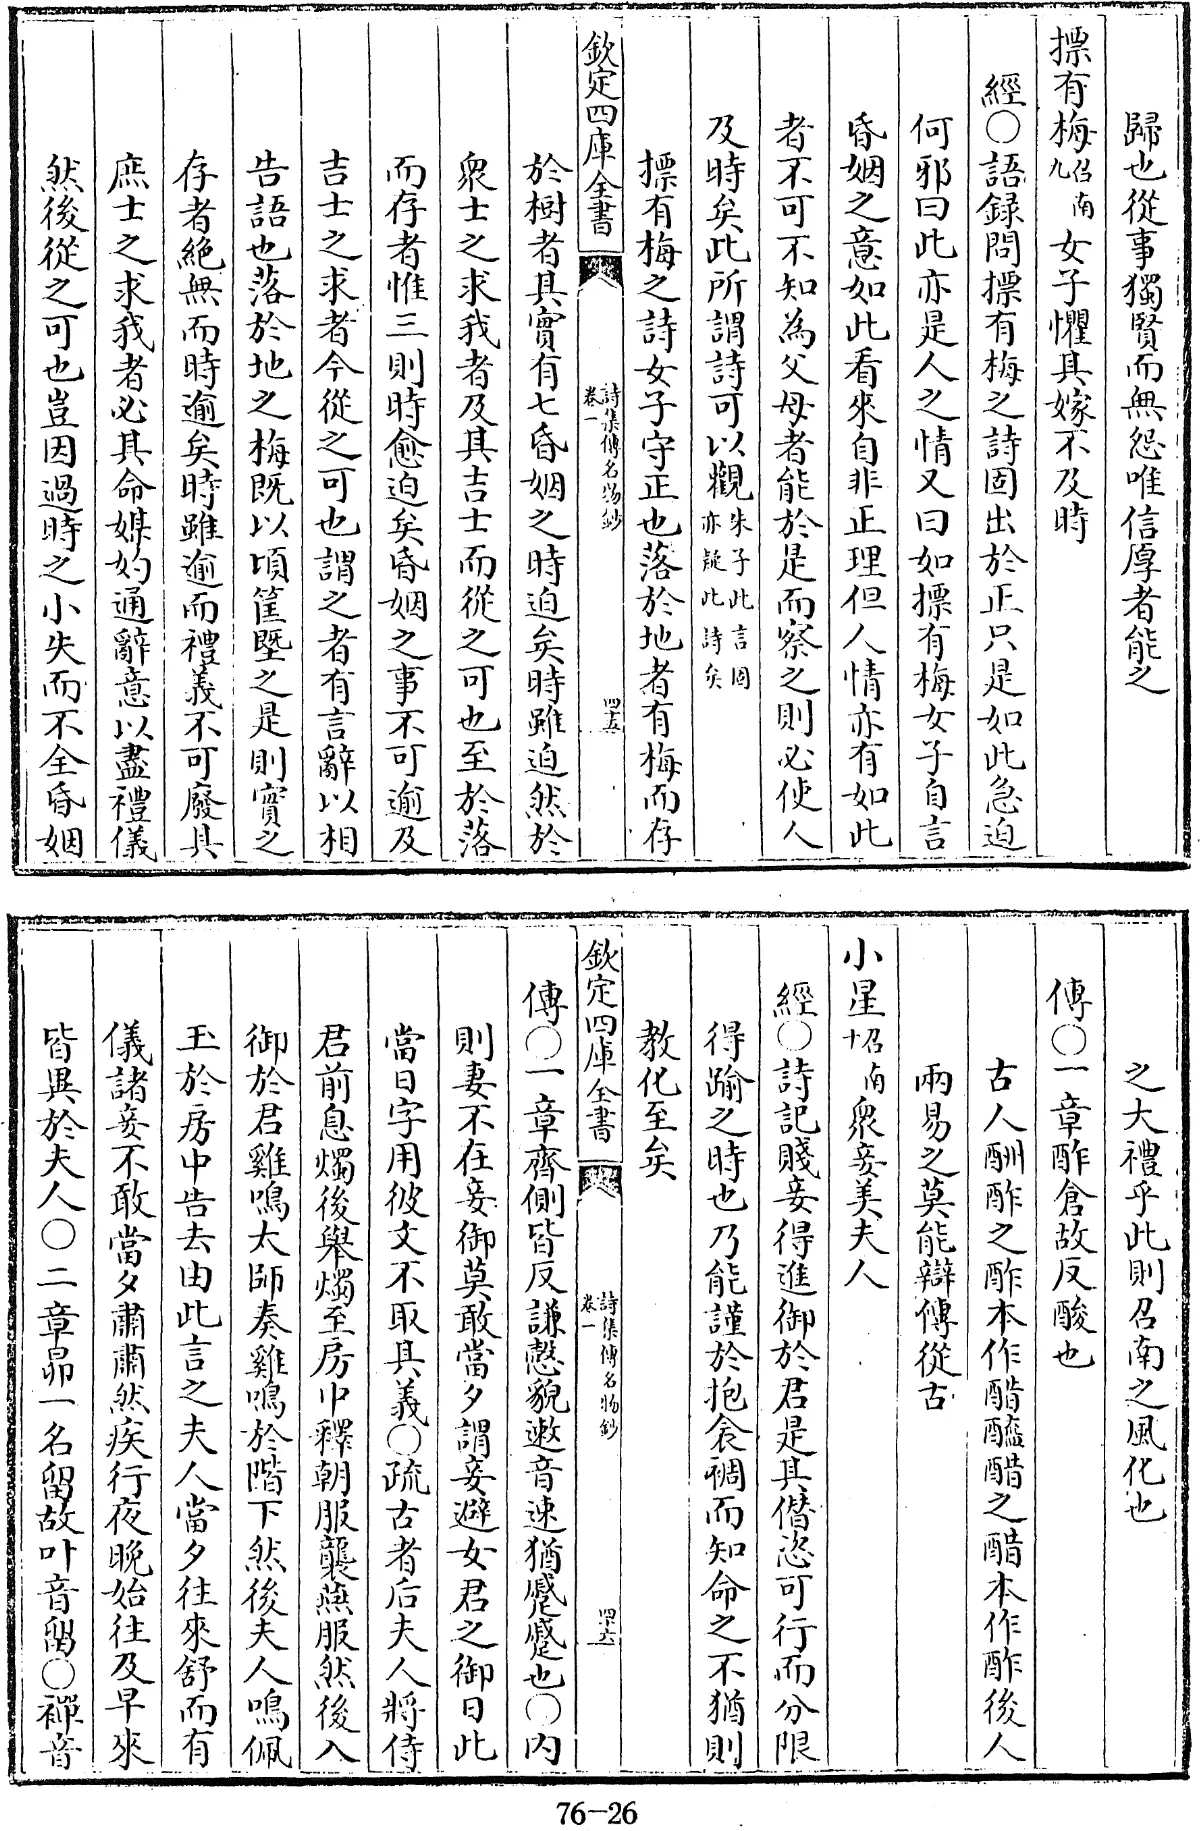 歸也從事獨賢而無怨唯信厚者能之
摽有梅召南九女子懼其嫁不及時
經○語録問摽有梅之詩固出於正只是如此急迫
何邪曰此亦是人之情又曰如摽有梅女子自言
昏姻之意如此看來自非正理但人情亦有如此
者不可不知為父母者能於是而察之則必使人
及時矣此所謂詩可以觀朱子此言固亦疑此詩矣
摽有梅之詩女子守正也落於地者有梅而存
欽定四庫全書 詩集傳名物鈔 卷一 四十五
於樹者其實有七昏姻之時迫矣時雖迫然於
衆士之求我者及其吉士而從之可也至於落
而存者惟三則時愈迫矣昏姻之事不可逾及
吉士之求者今從之可也謂之者有言辭以相
告語也落於地之梅既以頃筐塈之是則實之
存者絶無而時逾矣時雖逾而禮義不可廢其
庶士之求我者必其命媒妁通辭意以盡禮儀
然後從之可也豈因過時之小失而不全昏姻
之大禮乎此則召南之風化也
傳○一章酢倉故反酸也
古人酬酢之酢本作醋醯醋之醋本作酢後人
兩易之莫能辯傳從古
小星召南十衆妾美夫人
經○詩記賤妾得進御於君是其僭恣可行而分限
得踰之時也乃能謹於抱衾裯而知命之不猶則
教化至矣
欽定四庫全書 詩集傳名物鈔 卷一 四十六
傳○一章齊側皆反謙慤貌遬音速猶蹙蹙也○内
則妻不在妾御莫敢當夕謂妾避女君之御日此
當日字用彼文不取其義○疏古者后夫人將侍
君前息燭後舉燭至房中釋朝服襲燕服然後入
御於君雞鳴太師奏雞鳴於階下然後夫人鳴佩
玉於房中告去由此言之夫人當夕往來舒而有
儀諸妾不敢當夕肅肅然疾行夜晚始往及早來
皆異於夫人○二章昴一名留故叶音留○襌音
76-26